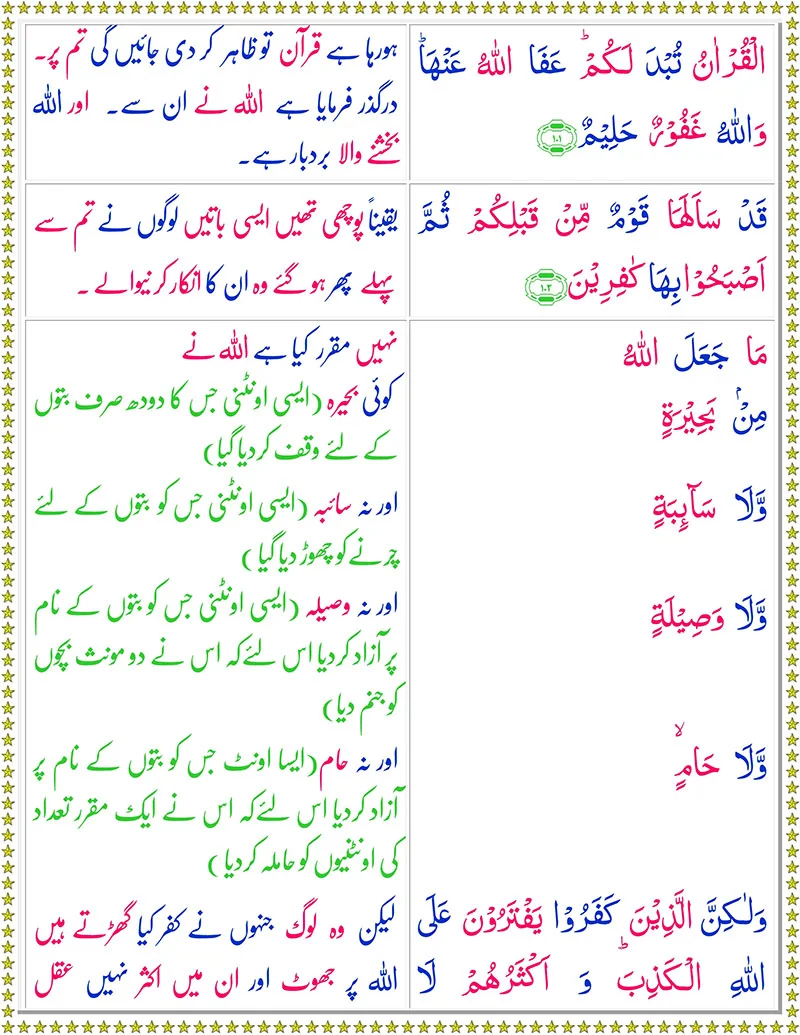 الْقُرْاٰنُ تُبْدَ لَـكُمْ ؕ عَفَا اللّٰهُ عَنْهَا ؕ
وَاللّٰهُ غَفُوْرٌ حَلِيْمٌ ۱۰۱
ہورہا ہے قرآن تو ظاہر کر دی جائیں گی تم پر۔
درگذر فرمایا ہے اللہ نے ان سے۔ اور اللہ
بخشنے والا بردبار ہے۔
قَدْ سَاَلَهَا قَوْمٌ مِّنْ قَبْلِكُمْ ثُمَّ
اَصْبَحُوْا بِهَا كٰفِرِيْنَ ۱۰۲
یقیناً پوچھی تھیں ایسی باتیں لوگوں نے تم سے
پہلے پھر ہو گئے وہ ان کا انکار کرنیوالے ۔
مَا جَعَلَ اللّٰهُ
مِنْۢ بَحِيْرَةٍ
وَّلَا سَآئِبَةٍ
وَّلَا وَصِيْلَةٍ
وَّلَا حَامٍ ۙ
نہیں مقرر کیا ہے اللہ نے
کوئی بحیرہ (ایسی اونٹنی جس کا دودھ صرف بتوں
کے لئے وقف کر دیا گیا)
اور نہ سائبہ (ایسی اونٹنی جس کو بتوں کے لئے
چرنے کو چھوڑ دیا گیا )
اور نہ وصیلہ (ایسی اونٹنی جس کو بتوں کے نام
پر آزاد کردیا اس لئے کہ اس نے دو مونث بچوں
کو جنم دیا)
اور نہ حام (ایسا اونٹ جس کو بتوں کے نام پر
آزاد کردیا اس لئے کہ اس نے ایک مقرر تعداد
کی اونٹنیوں کو حاملہ کر دیا )
وَلٰـكِنَّ الَّذِيْنَ كَفَرُوْا يَفْتَرُوْنَ عَلَى
اللّٰهِ الْـكَذِبَ ؕ وَ اَكْثَرُهُمْ لَا
لیکن وہ لوگ جنہوں نے کفر کیا گھڑتے ہیں
اللہ پر جھوٹ اور ان میں اکثر نہیں عقل